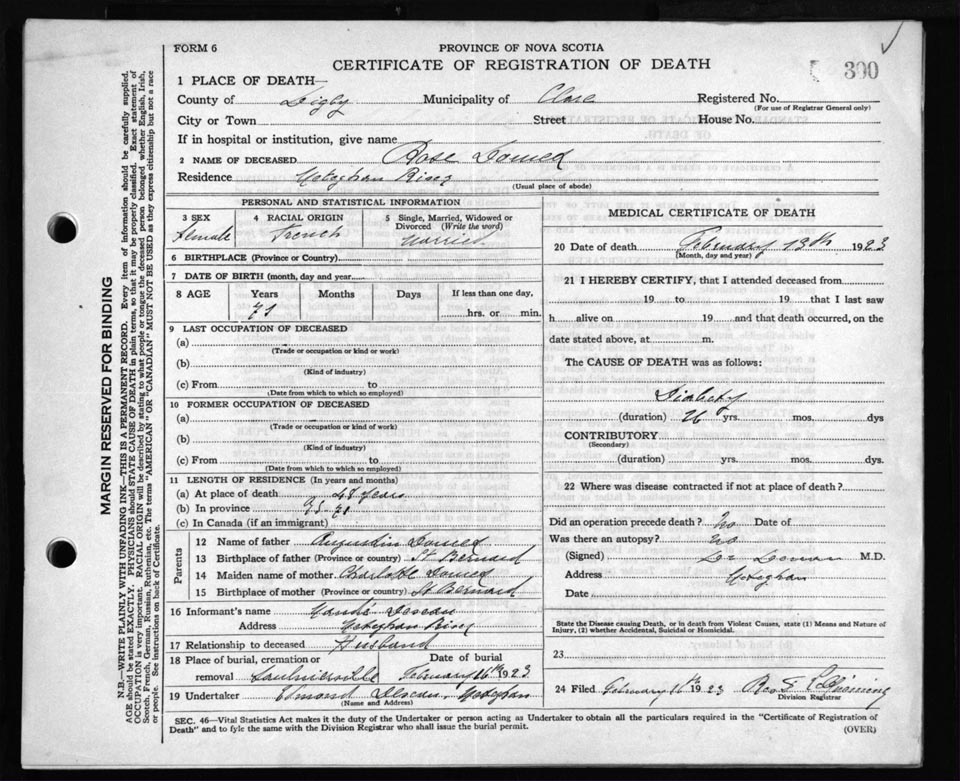 FORM 6
PROVINCE OF NOVA SCOTIA
CERTIFICATE OF REGISTRATION OF DEATH
300
1 PLACE OF DEATH—
County of Digby Municipality of Clare Registered No.
(For use of Registrar General only)
City or Town Street House No.
If in hospital or institution, give name
2 NAME OF DECEASED Rose
Residence Meteghan River
(Usual place of abode)
PERSONAL AND STATISTICAL INFORMATION
3 SEX Female
4 RACIAL ORIGIN French
5 Single, Married, Widowed or Divorced (Write the word) Married
6 BIRTHPLACE (Province or Country)
7 DATE OF BIRTH (month, day and year)
8 AGE Years Months Days If less than one day,
71 hrs. or min.
9 LAST OCCUPATION OF DECEASED
(a)
(Trade or occupation or kind or work)
(b)
(Kind of industry)
(c) From to
(Date from which to which so employed)
10 FORMER OCCUPATION OF DECEASED
(a)
(Trade or occupation or kind of work)
(b)
(Kind of industry)
(c) From to
(Date from which to which so employed)
11 LENGTH OF RESIDENCE (In years and months)
(a) At place of death 48 years
(b) In province
(c) In Canada (if an immigrant)
Parents
12 Name of father Augustin
13 Birthplace of father (Province or country) St Bernard
14 Maiden name of mother Charlotte
15 Birthplace of mother (Province or country) St Bernard
16 Informant's name
Address Meteghan River
17 Relationship to deceased Husband
18 Place of burial, cremation or removal Saulnierville
Date of burial February 16th 1923
19 Undertaker Elmond Meteghan
(Name and Address)
MEDICAL CERTIFICATE OF DEATH
20 Date of death February 13th 1923
(Month, day and year)
21 I HEREBY CERTIFY, that I attended deceased from
19 to 19 that I last saw
h alive on 19 and that death occurred, on the
date stated above, at m.
The CAUSE OF DEATH was as follows:
(duration) yrs. mos. dys
CONTRIBUTORY
(Secondary)
(duration) yrs. mos. dys.
22 Where was disease contracted if not at place of death?
Did an operation precede death? No Date of
Was there an autopsy? No
(Signed) M.D.
Address Meteghan
Date
State the Disease causing Death, or in death from Violent Causes, state (1) Means and Nature of
Injury, (2) whether Accidental, Suicidal or Homicidal.
23
24 Filed February 16th 1923 Rev
Division Registrar
SEC. 46—Vital Statistics Act makes it the duty of the Undertaker or person acting as Undertaker to obtain all the particulars required in the "Certificate of Registration of
Death" and to fyle the same with the Division Registrar who shall issue the burial permit.
(OVER)
MARGIN RESERVED FOR BINDING
N.B.—WRITE PLAINLY WITH UNFADING INK—THIS IS A PERMANENT RECORD. Every item of information should be carefully supplied.
AGE should be stated EXACTLY. PHYSICIANS should STATE CAUSE OF DEATH in plain terms, so that it may be properly classified. Exact statement of
OCCUPATION is very important. RACIAL ORIGIN will be described by stating to what people or tongue the deceased person belonged whether English, Irish,
Scotch, French, German, Russian, Ruthenian, etc. The terms "AMERICAN" OR "CANADIAN" MUST NOT BE USED as they express citizenship but not a race
or people. See instructions on back of Certificate.